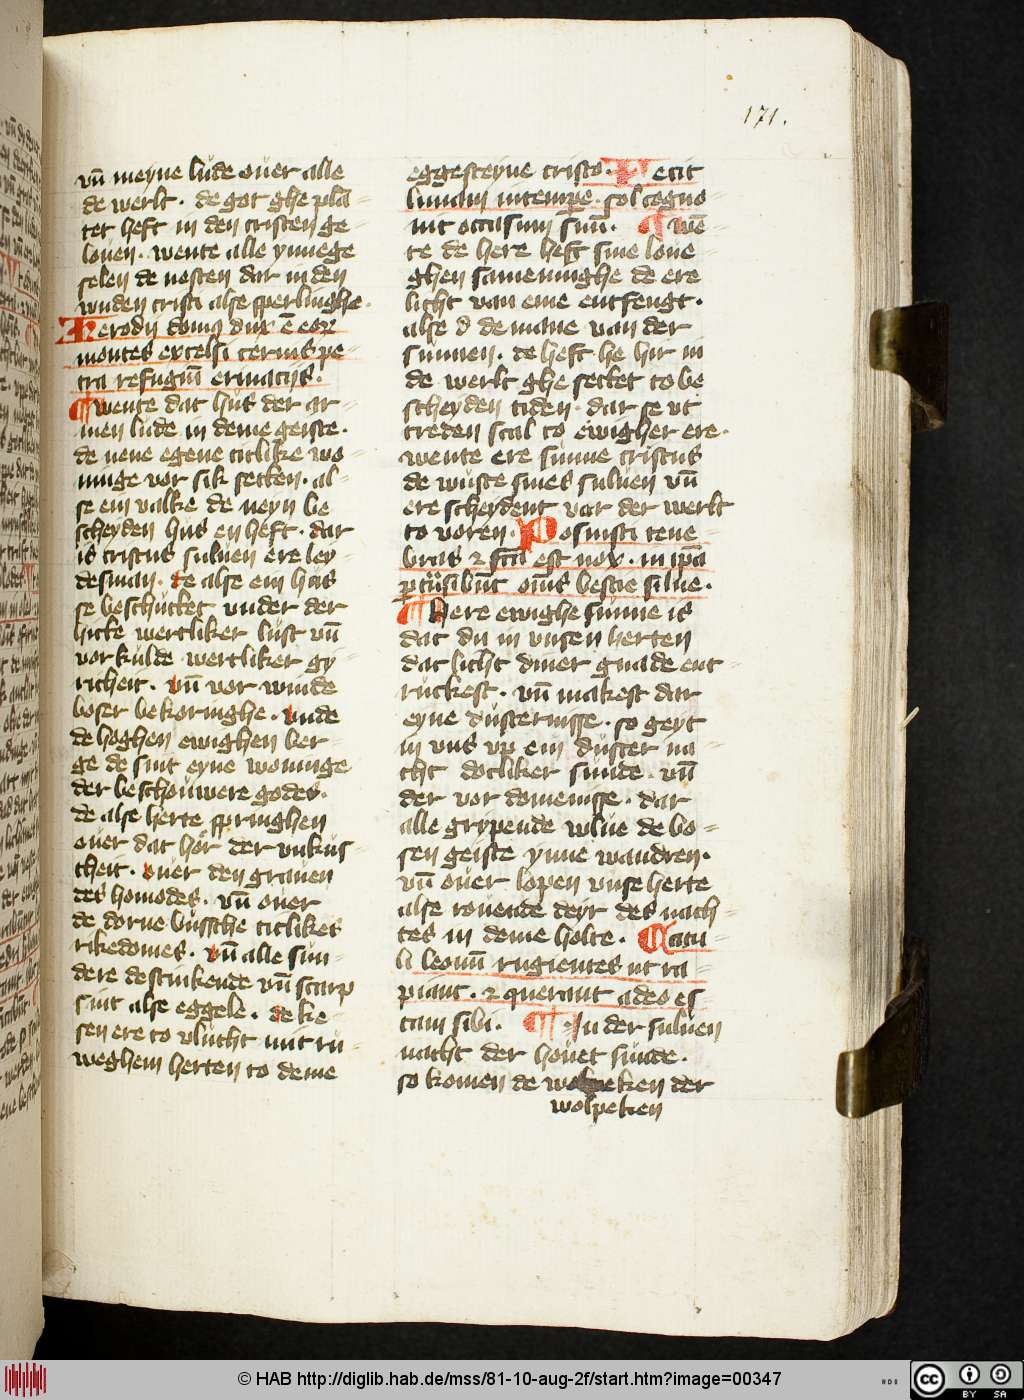 171.
vn̄ meyne lüde ouer alle
de werlt. de got ghe plā=
tet heft in den cristen ge=
louen. wente alle ynnege
selen de nesten dar in den
wnden cristi alse sperlinghe.
Herodij domꝰ dux ē eoꝝ
montes excelsi ceruis pe=
tra refugiū ermacijs.
¶ wente dat hus der ar=
men lude in deme geiste.
de nene egene titlike wo=
ninge vor sik setten. al=
se ein valke de neyn be
scheyden hus en heft. dar
is cristus suluen ere ley=
desman. de alse ein hās
se beschüttet vnder der
hitte wertliker lüst vn̄
vor külde wertliker gy=
richeit. vn̄ vor winde
boser bekoringhe. vnde
de hoghen ewighen ber=
ge de sint eyne woninge
der beschouwere godes.
de alse herte springhen
ouer dat hor der vnküs=
cheit. ouer den grauen
des homodes. vn̄ ouer
de dorne bussche titlikes
rikedomes. vn̄ alle sün=
dere de stinkende vn̄ scarp
sint alse eggele. de ke=
sen ere to vlucht mit rü=
weghem herten to deme
eggesteyne cristo. Fecit
lunam in tempe. sol cogno
uit occasum suū. ¶ we=
te de here heft sine loue=
ghen sameninghe de ere
licht van eme entfengt.
alse d de mane van der
sunnen. de heft he hir in
de werlt ghe settet to be
scheyden tiden. dar se vt
treden scal to ewigher ere.
wente ere sunne cristus
de wüste sines suluen vn̄
ere scheydent var der werlt
to voren. Posuisti tene=
bras ⁊ fc̄a est nox. in ip̄a
ꝑtrāsibūt om̄s bestie silue.
¶ Here ewighe sunne is
dat du in vnsen herten
dat licht diner gnade ent=
rückest. vn̄ makest dar
eyne düsternisse. so geyt
in vns vp ein düster na=
cht dotliker sunde. vn̄
der vor domenisse. dar
alle grypende wlue de bo=
sen geiste ynne wandren.
vn̄ ouer lopen vnse herte
alse rouende deyr des nach=
tes in deme holte. Catu=
li leonū rugientes ut ra=
piant. ⁊ querant a deo es
cam sibi. ¶ In der suluen
nacht der houet sunde.
so komen de ken der
wolpeken
© HAB http://diglib.hab.de/mss/81-10-aug-2f/start.htm?image=00347
HAB
cc
BY SA